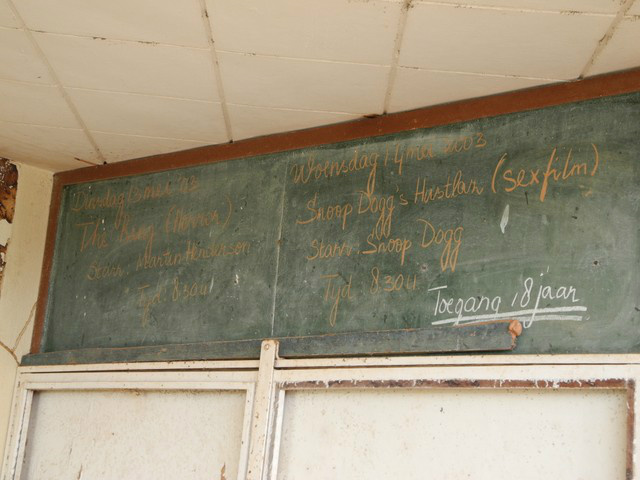 Dinsdag 13 mei '03
The Ring (Horror)
Starr. Martin Henderson
Tyd 8.30 u
Woensdag 14 mei 2003
Snoop Dogg's Hustlaz (sexfilm)
Starr. Snoop Dogg
Tyd 8.30 u
Toegang 18 jaar